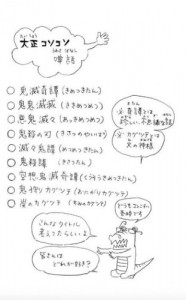 たいしょう
大正コソコソ
うわさばなし
噂話
○鬼滅奇譚(きめつきたん)
○鬼鬼滅滅(ききめつめつ)
○悪鬼滅々(あっきめつめつ)
○鬼殺の刃(きさつのやいば)
○滅々鬼譚(めつめつきたん)
○鬼殺譚(きさつたん)
○空想鬼滅奇譚(くうそうきめつきたん)
○鬼狩りカグツチ(おにがりカグツチ)
○炭のカグツチ(すみのカグツチ)
※奇譚とは
珍しい不思議な話
※カグツチは
火の神様
こんなタイトル
考えてたらしいよ
皆さんは
どれが好き?